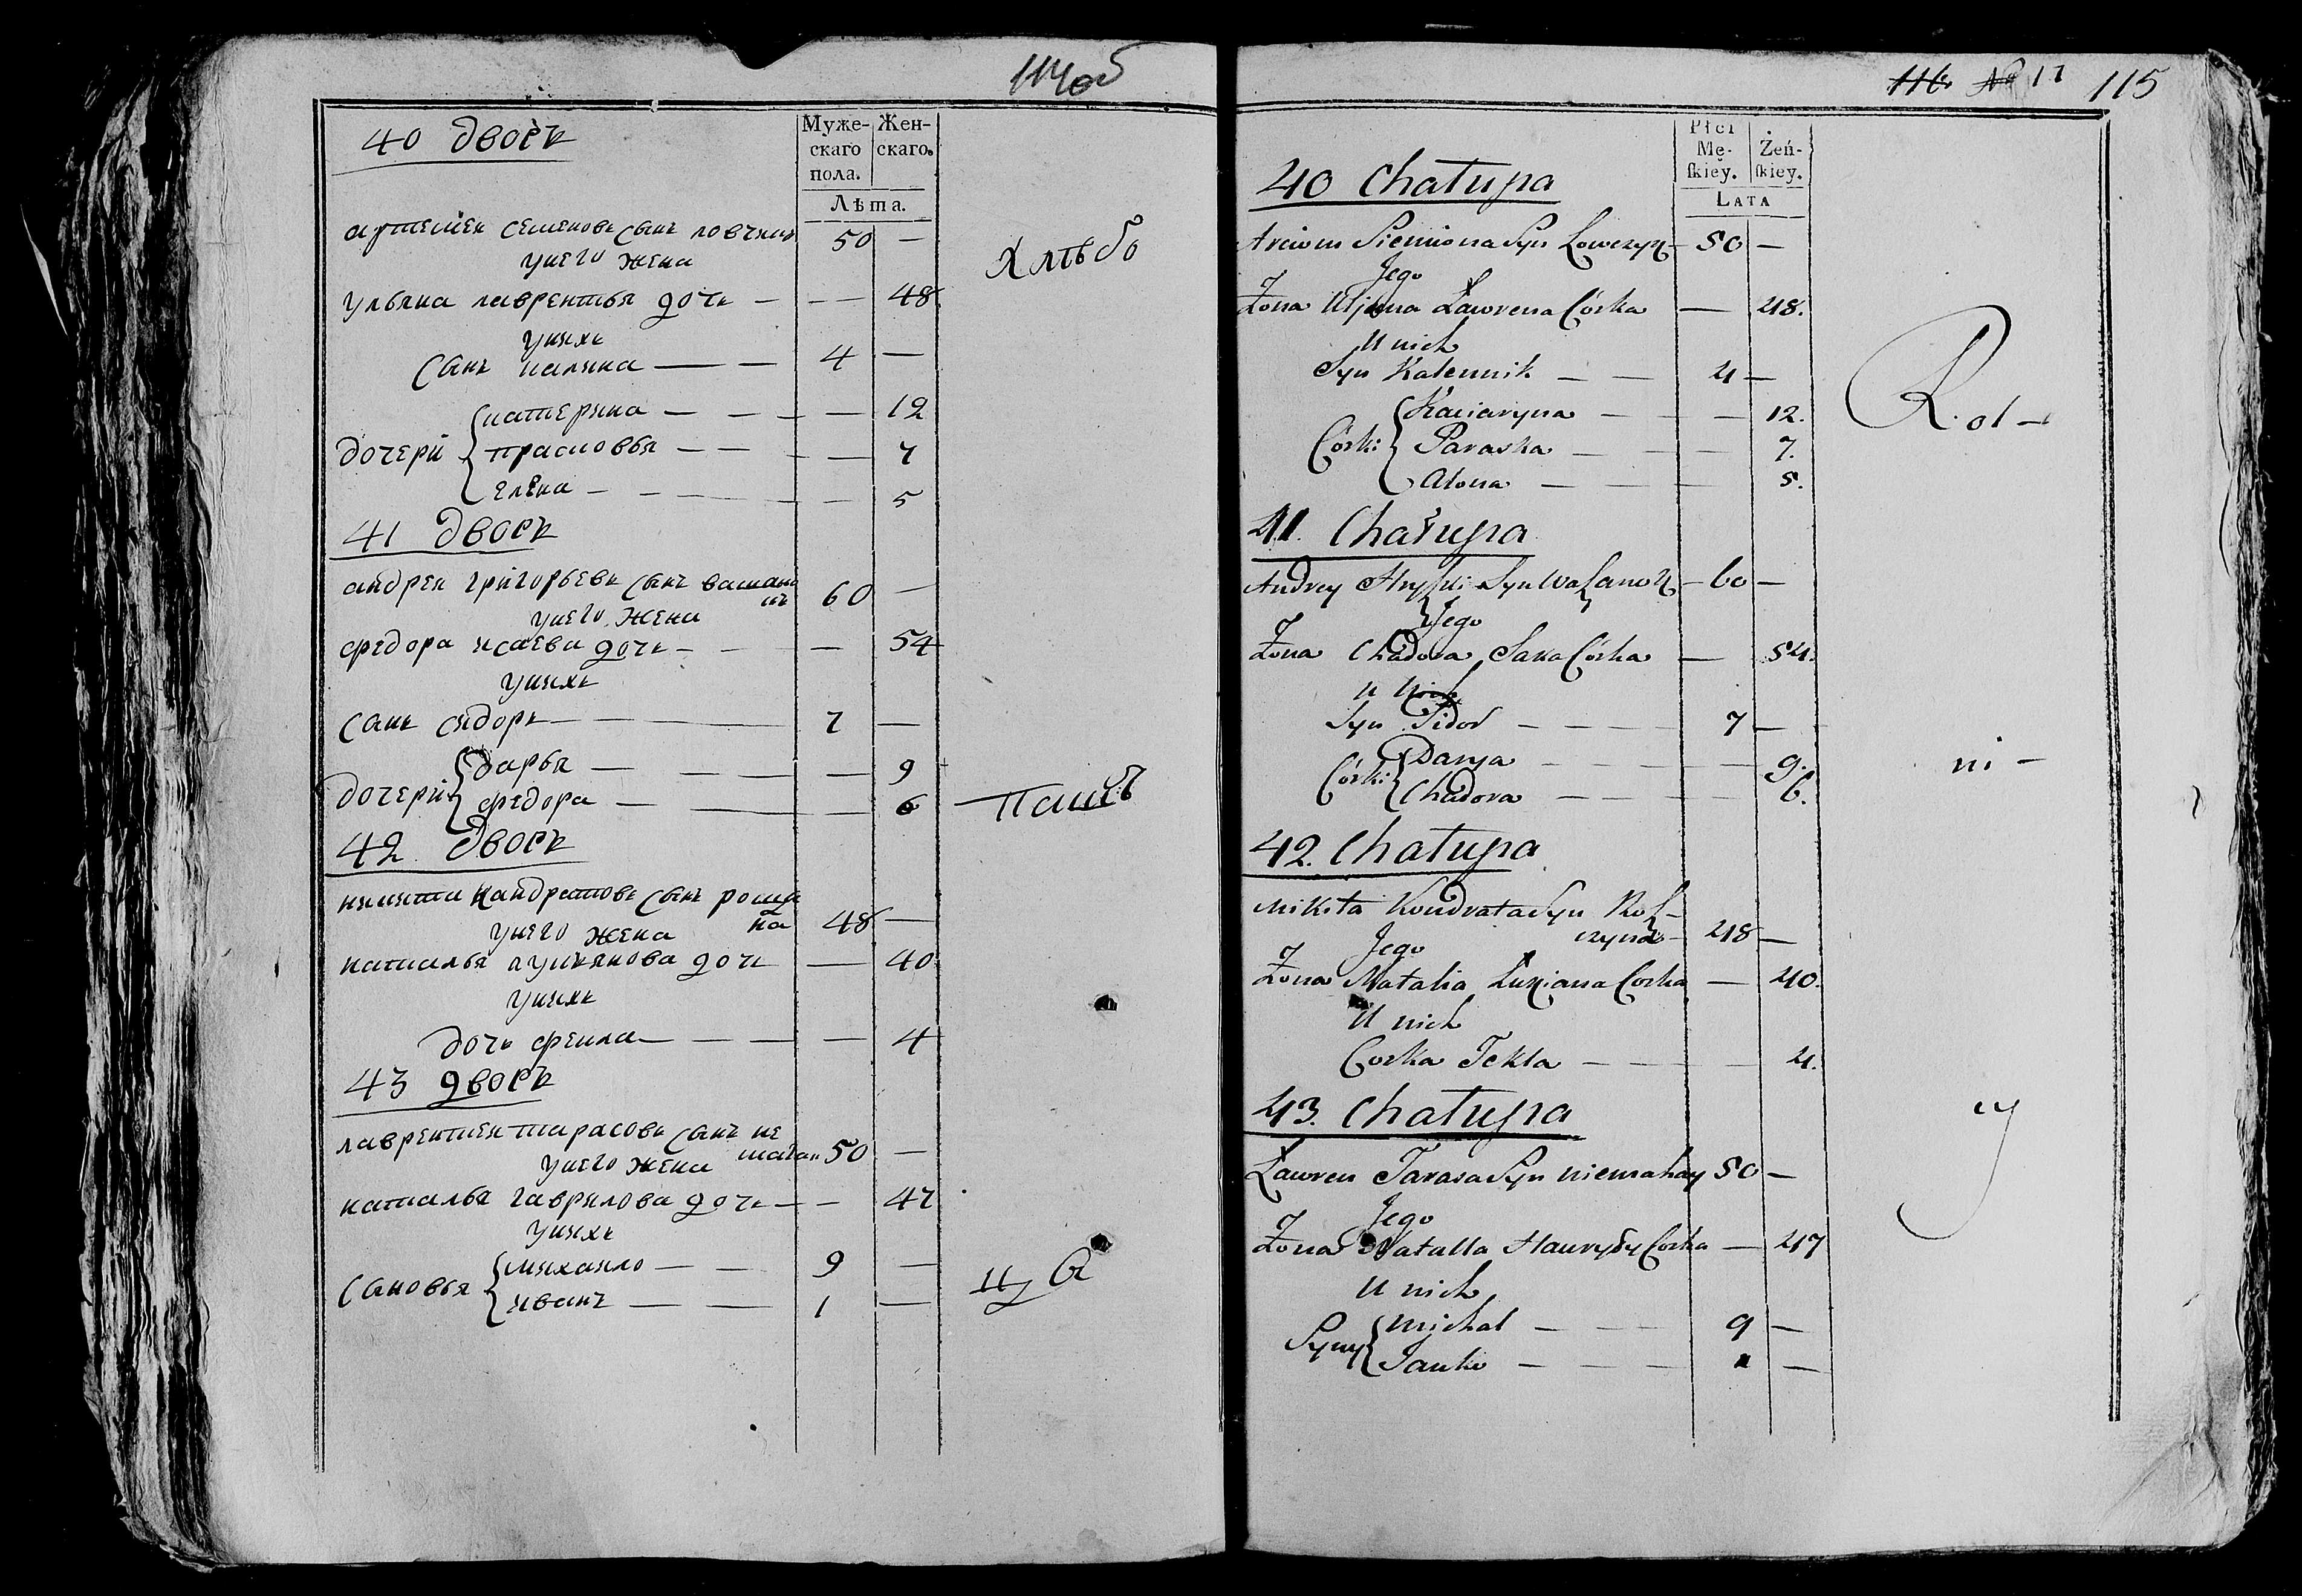 114об
40 дворъ
Муже-
скаго
пола.
Жен-
скаго.
Лѣта.
артемей семеновъ сынъ ловчинъ 50 —
у него жена
ульяна лаврентья дочь — — — 48
у нихъ
сынъ калина — — 4 —
Хлѣбо
дочери { катерина — — — — 12
прасковья — — — — 7
елена — — — — 5
41 дворъ
андрей григорьевъ сынъ вашано
60 —
у него жена
федора исаева дочь — — — 54
у нихъ
сынъ сидоръ — — 7 —
дочери { дарья — — — — 9
федора — — — 6
— паш
42 дворъ
никита кандратовъ сынъ рощи
на 48 —
у него жена
наталья лукьянова дочь — 40
у нихъ
дочь фекла — — — — 4
43 дворъ
лаврентей тарасовъ сынъ не
магай 50 —
у него жена
наталья гаврилова дочь — — 47
у нихъ
сыновья { михайло — — 9 —
иванъ — — 1 —
цы
116 17 115
40 Chałupa
Płci
Mę-
ſkiey.
Żeń-
ſkiey.
LATA
Arciom Siemiona Syn Łowczyn — 50 —
Jego
Żona Uljana Ławrena Córka — 48.
U nich
Syn Kalennik — — 4 —
Córki { Kaciaryna — — 12.
Paraska — — 7.
Alona — — 5.
Rol —
41. Chałupa
Andrey Hryſki Syn — 60 —
Jego
Żona Chadora Saka Córka — 54.
U nich
Syn Sidor — — — 7 —
Córki { Darya — — — 9.
Chadora — — — 6.
ni —
42. Chałupa
Mikita Kondrata Syn Roſ-
czyna — 48 —
Jego
Żona Natalia Łukjana Corka — 40.
U nich
Corka Tekla — — — 4.
43. Chałupa
Ławren Tarasa Syn niemahay 50 —
Jego
Żona Natalla Hauryły Corka — 47
U nich
Syny { Michal — — — 9 —
Janko — — — 1 —
cy